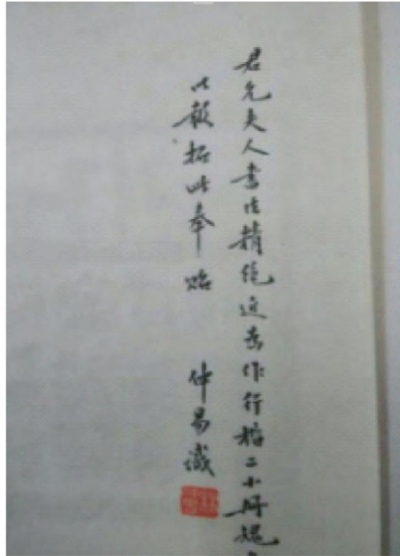 君允夫人書法精絕近为作行楷二小冊現
以报拓此奉贻
仲易識